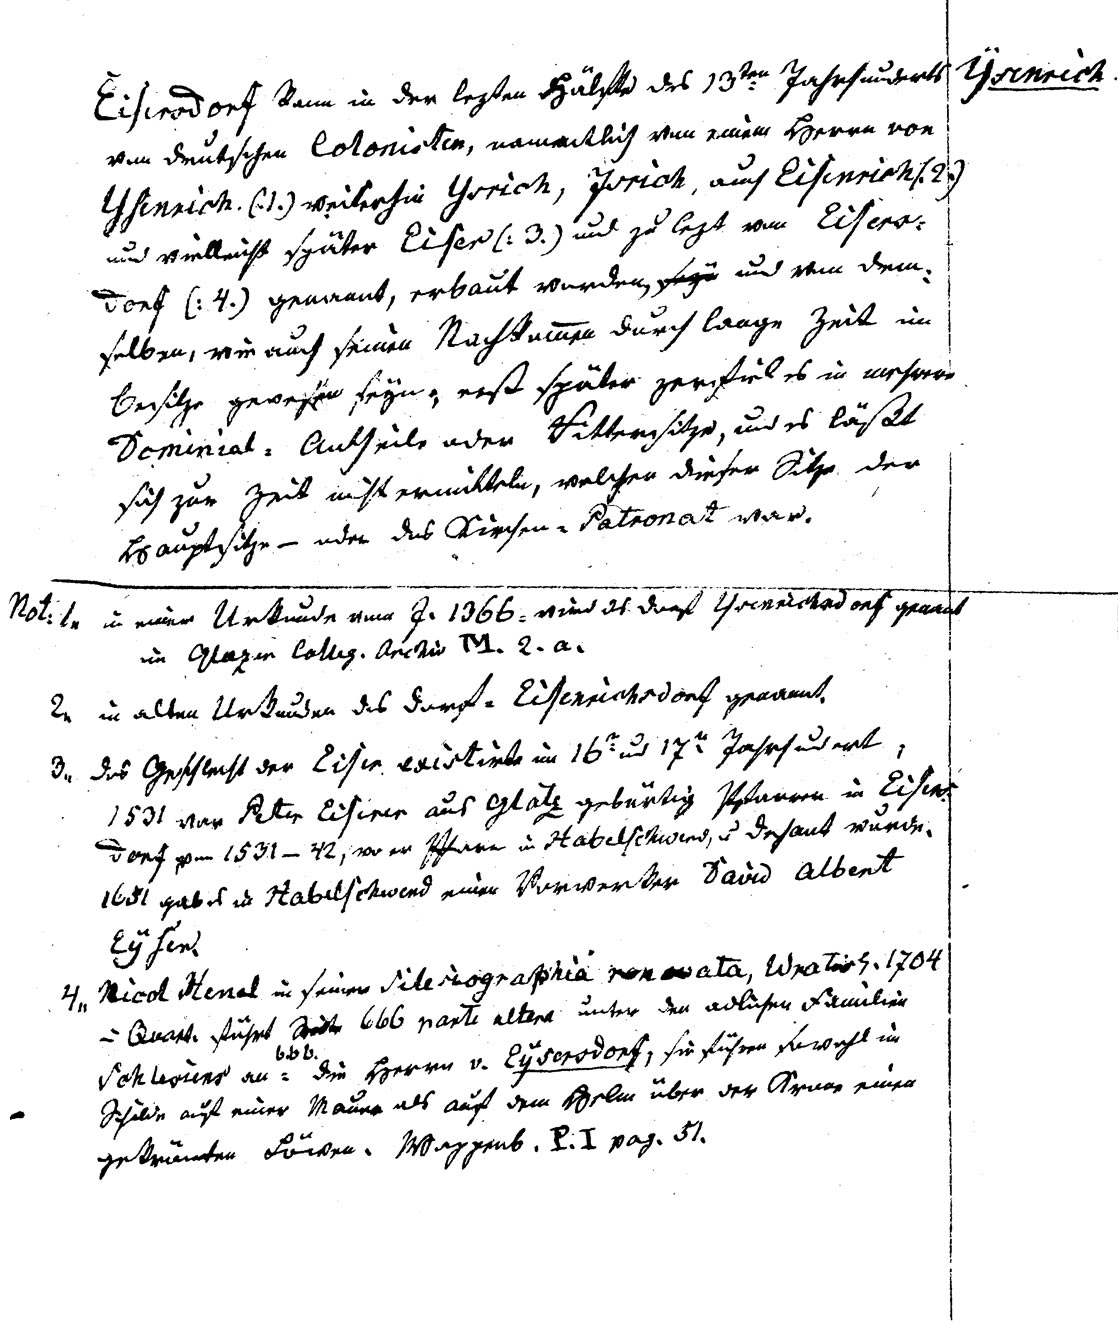 Eisersdorf kann in der lezten Hälfte des 13ten Jahrhunderts
Ysenrich.
von deutschen Colonisten, namentlich von einem Herrn von
Yhsenrich. (:1.) weiterhin Ysrich, Isrich, auch Eisenrich (:2.)
und vielleicht später Eiser (: 3.) und zu lezt von Eisers=
dorf (: 4.) genannt, erbaut worden, seyn und von dem=
selben, wie auch seinen Nachkommen durch lange Zeit im
Besitze gewesen seyn; erst später zerfiel es in mehrere
Dominial= Antheile oder Rittersitze, und es läßt
sich zur Zeit nicht ermitteln, welcher dieser Sitze der
Hauptsitze – oder das Kirchen= Patronat war.
Not: 1. in einer Urkunde vom J. 1366 wird das dorf Ysenrichsdorf genannt
im Glazer Colleg. Archiv M. 2. a.
2. in alten Urkunden das Dorf= Eisenrichsdorf genannt.
3. das Geschlecht der Eiser existirte im 16n und 17n Jahrhundert,
1531 war Peter Eiserer aus Glatz gebürtig Pfarrer in Eisers=
dorf von 1531 – 42, wo er Pfarrer in Habelschwerd, u Dechant wurde.
1651 gab es in Habelschwerd einen Vorwerker David Albert
Eyser.
4. Nicol Henel in seiner Silesiographia renovata, Wratisl. 1704
in Quart. führt Seite 666 parte altera unter den adlichen Familien
666.
Schlesiens an = die Herrn v. Eysersdorf, sie führen sowohl im
Schilde auf einer Mauer als auf dem Helm über der Krone einen
gekrönten Löwen. Wappenb. P. I pag. 51.